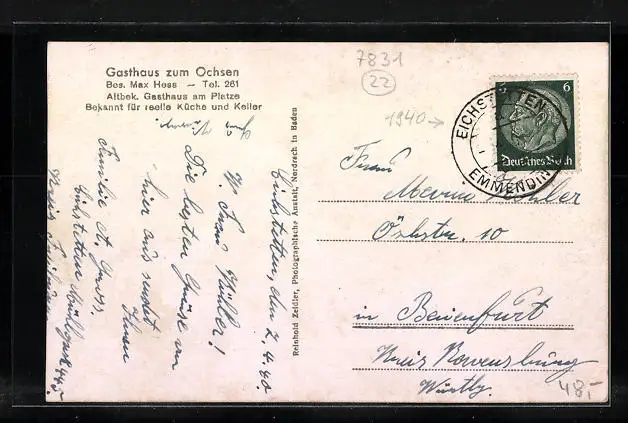 Gasthaus zum Ochsen
Bes. Max Hess — Tel. 261
Altbek. Gasthaus am Platze
Bekannt für reelle Küche und Keller
Eichstetten, den 2.4.40
W. Frau Müller!
Die besten Grüße von
hier aus sendet
Ihnen
Familie A.
Eichstetten
Kreis Freiburg
Reinhold Zeidler, Photographische Anstalt, Nordrach in Baden
7831
22
1940 →
EICHSTETTEN
EMMENDIN
6
6
Deutsches Reich
Frau
Müller
10
in Baienfurt
Kreis Ravensburg
Württbg.
48,-